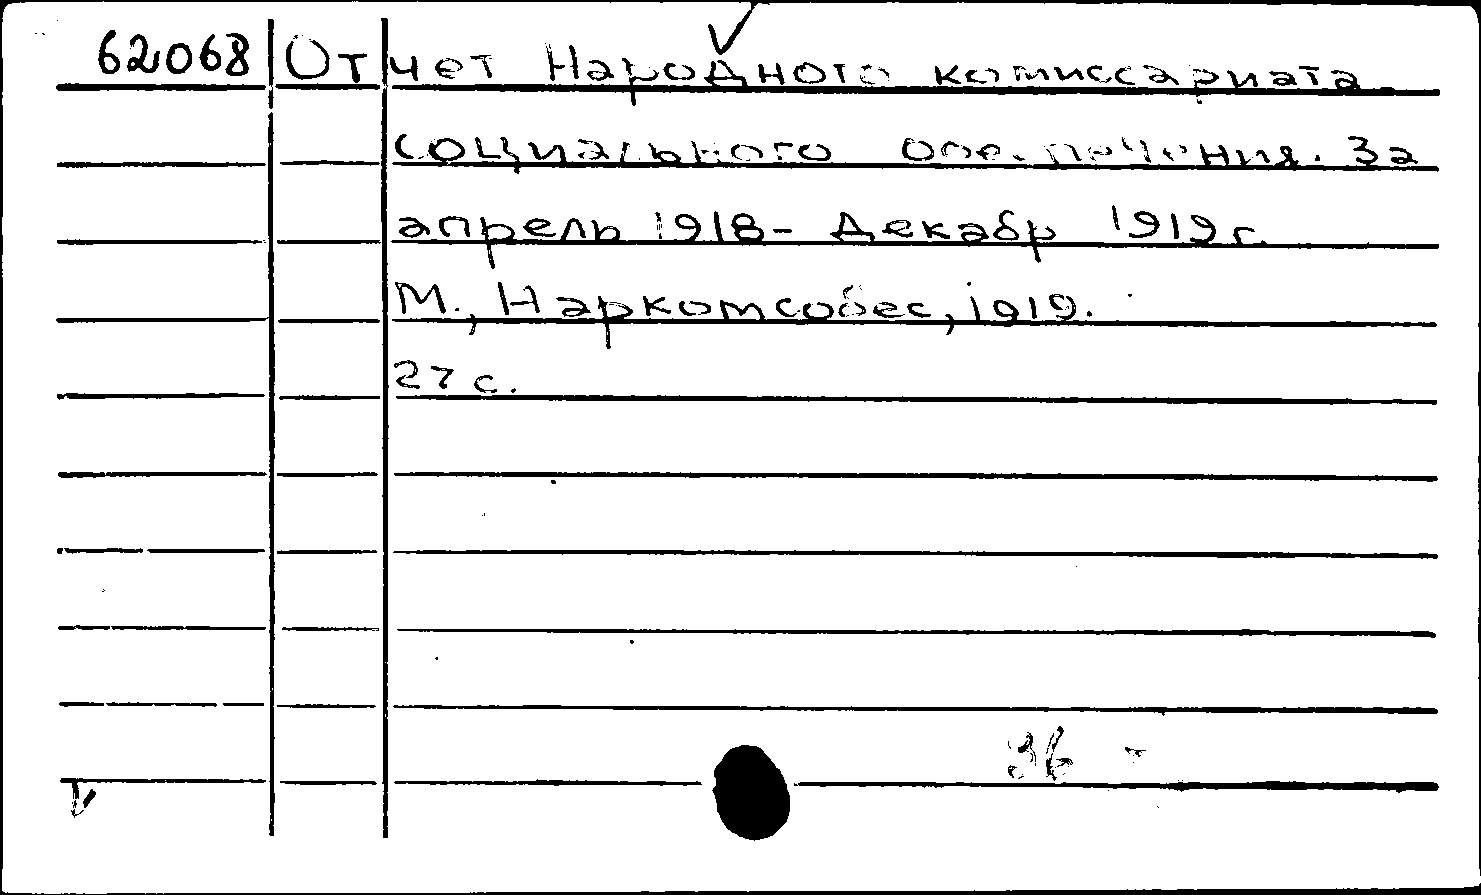 62068 Отчет Народного комиссариата
социального обеспечения. За
апрель 1918- Декабр 1919г.
М., Наркомсобес, 1919.
27 с.
36 -